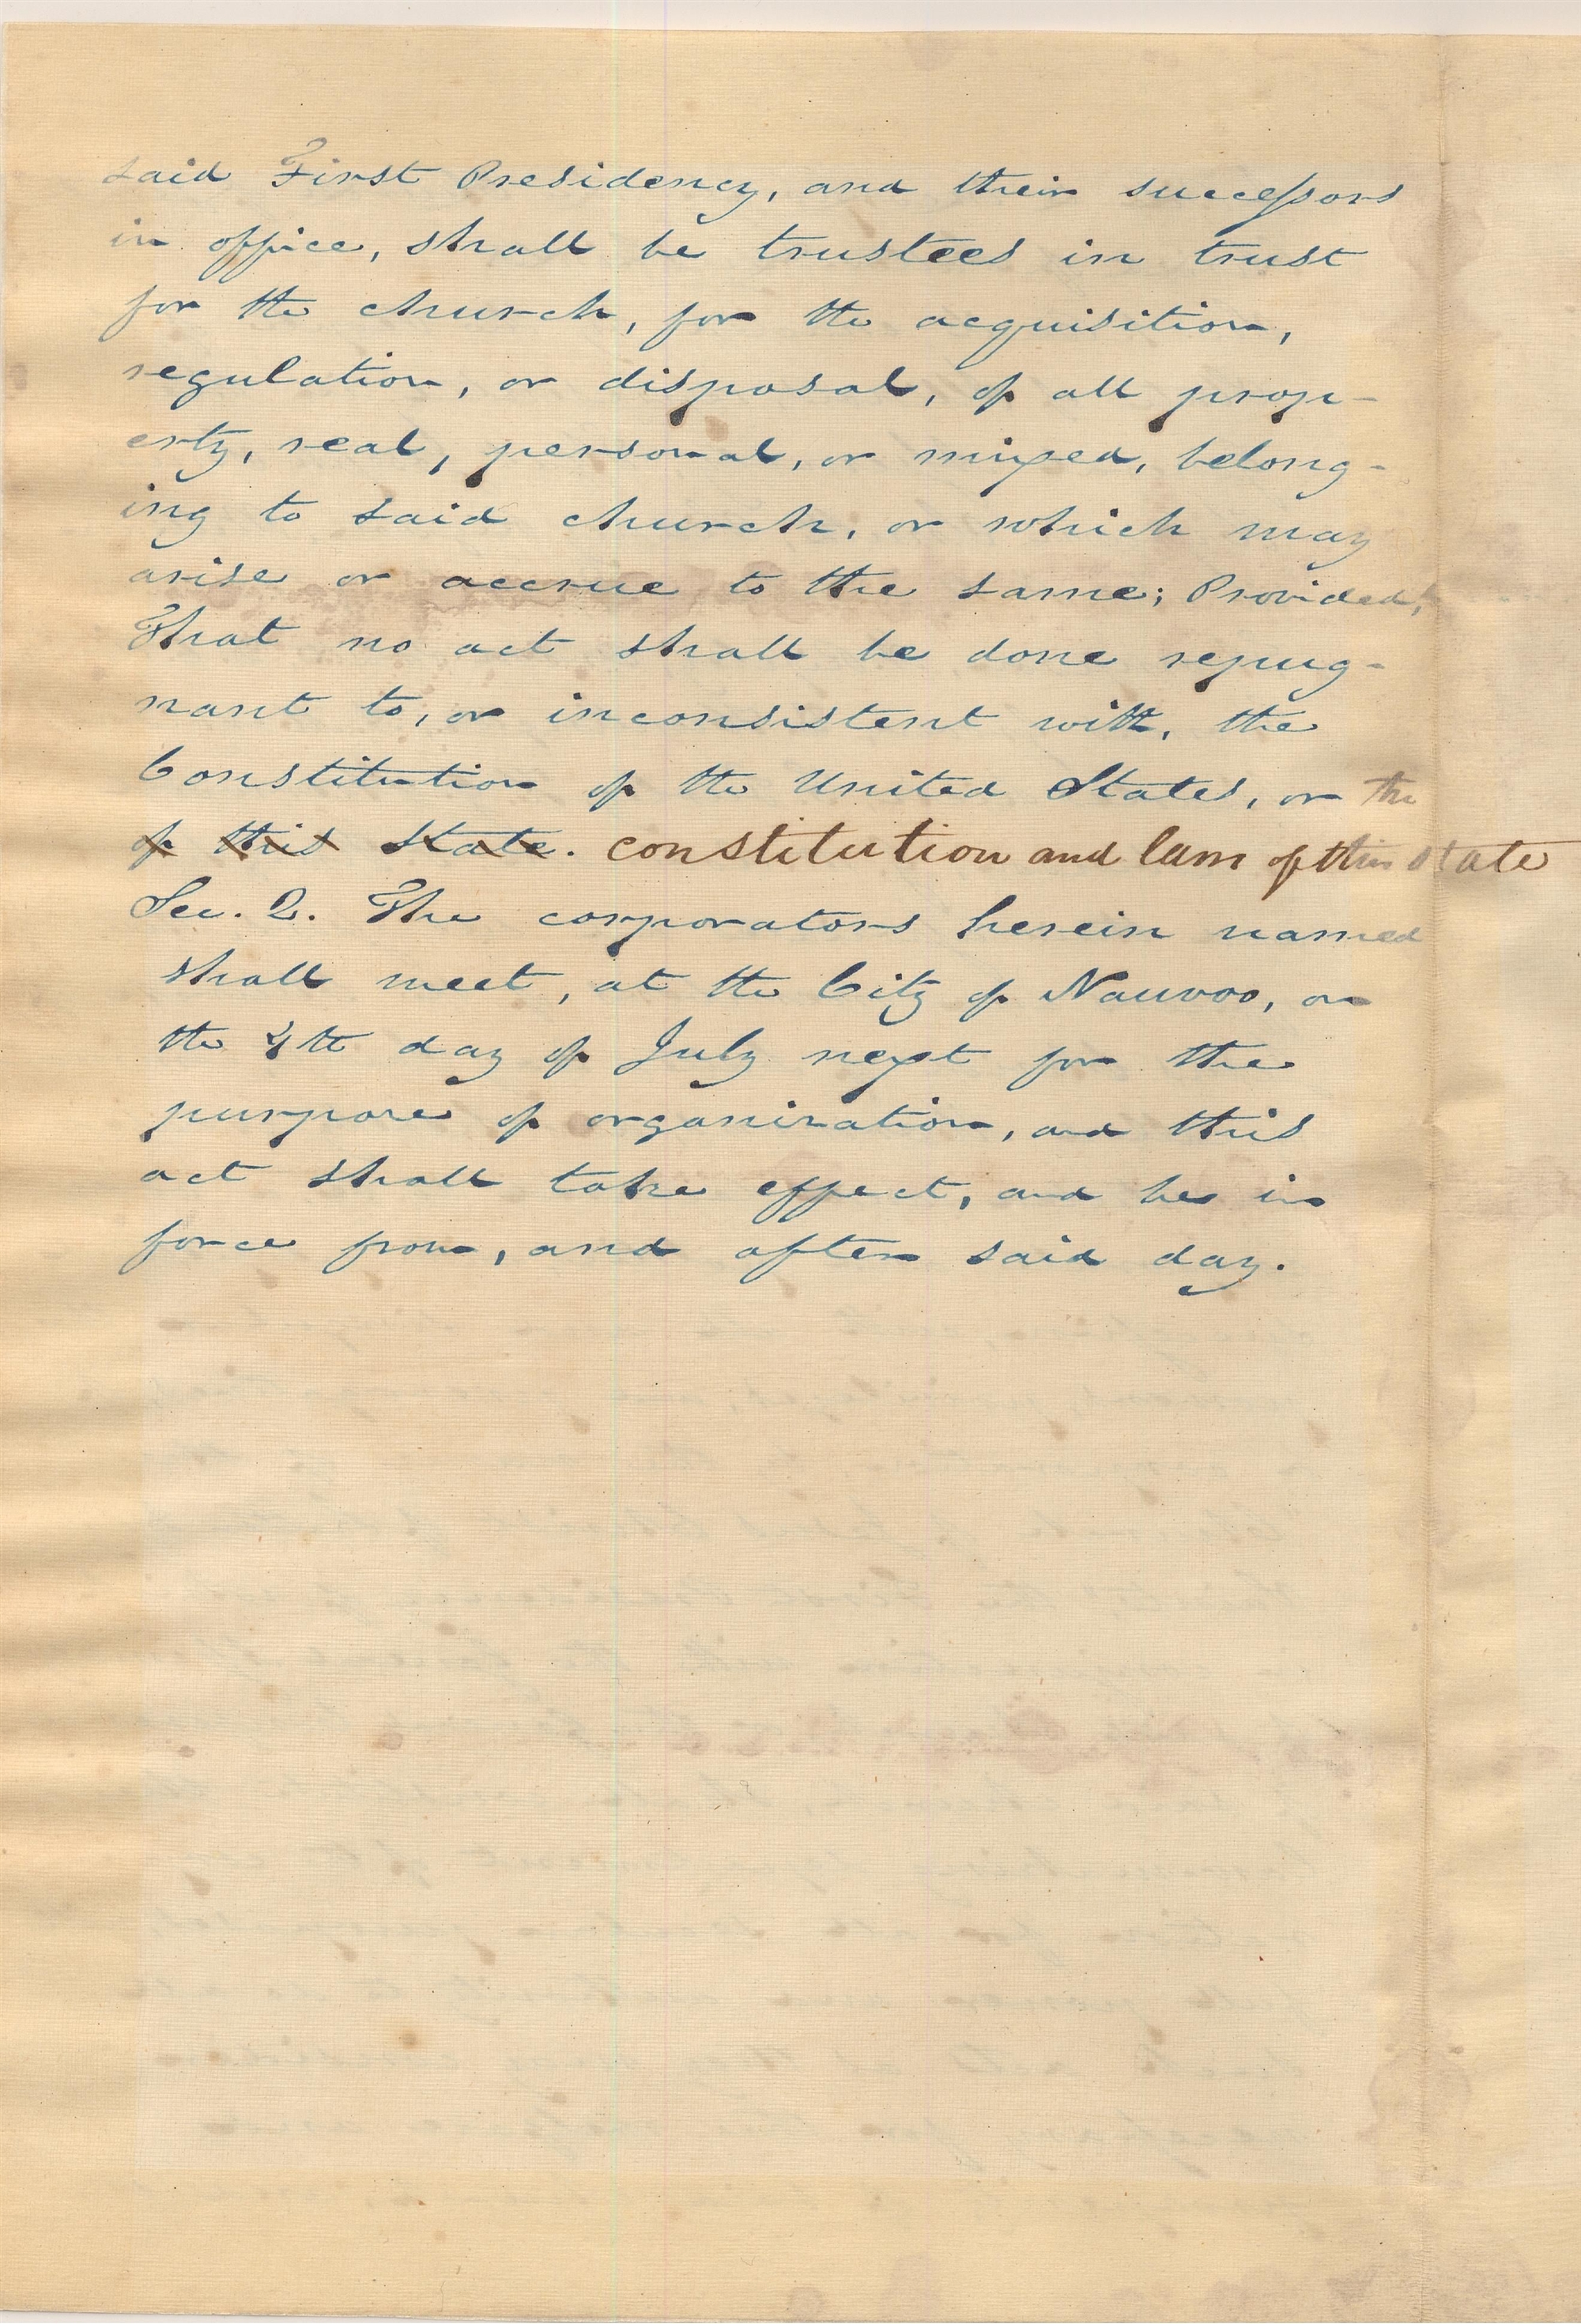 said First Presidency, and their successors
in office, shall be trustees in trust
for the church, for the acquisition,
regulation, or disposal, of all prop-
erty, real, personal, or mixed, belong-
ing to said church, or which may
arise or accrue to the same; Provided,
That no act shall be done repug-
nant to, or inconsistent with, the
Constitution of the United States, or the
of this State. constitution and laws of this state
Sec. 2. The corporators herein named
shall meet, at the City of Nauvoo, on
the 4th day of July next for the
purpose of organization, and this
act shall take effect, and be in
force from, and after said day.